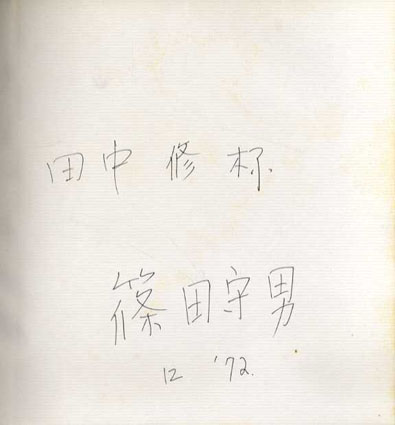 田中 修 様
篠田守男
12 '72.